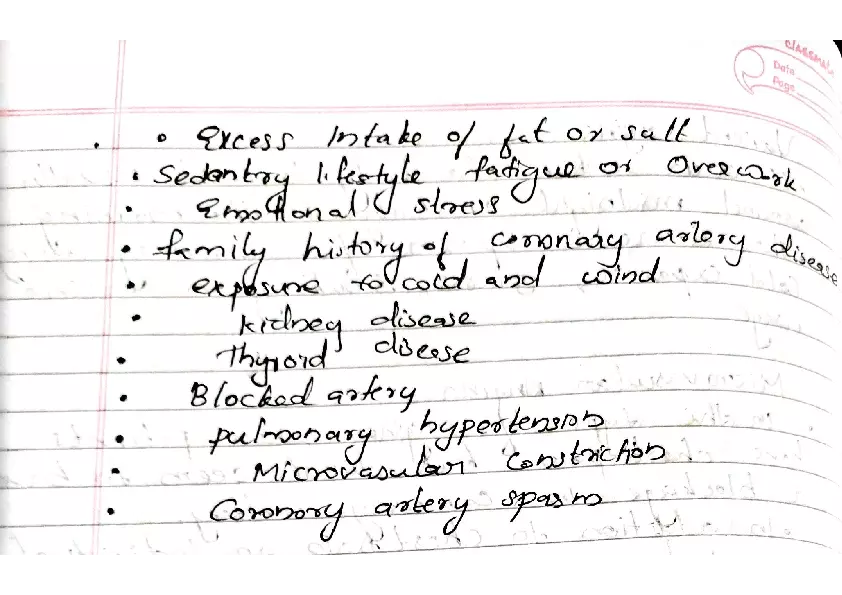 classmate
Date
Page
• Excess Intake of fat or salt
• Sedentry lifestyle fatigue or Overwork
• Emotional stress
• family history of coronary artery disease
• exposure to cold and wind
• kidney disease
• Thyroid disease
• Blocked artery
• pulmonary hypertension
• Microvasular constriction.
• Coronory artery spasm